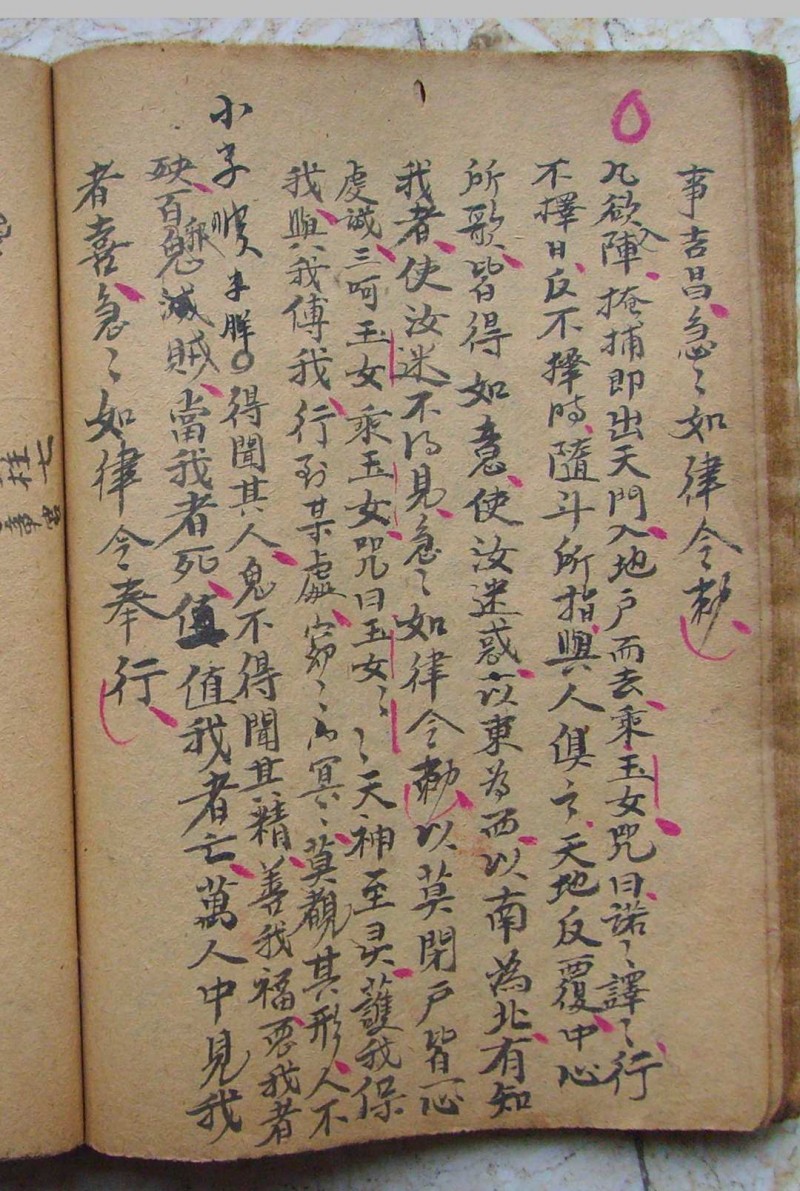 事吉昌急〻如律令勅
凡欲入陣掩捕即出天門入地户而去乘玉女咒曰諾〻譯〻行
不擇日反不擇時隨斗所指與人俱之天地反覆中心
所歌皆得如意使汝迷惑以東為西以南為北有知
我者使汝迷不得見急〻如律令勅以莫閉户皆心
虔誠三呵玉女乘玉女咒曰玉女〻〻天神至灵護我保
我與我傅我行到某處窈〻冥〻莫覩其形人不
小子 得聞其人鬼不得聞其精善我福惡我者
殃百鬼 滅賊當我者死值值我者亡萬人中見我
者喜急〻如律令奉行